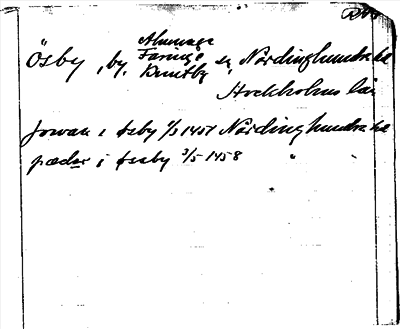 Ösby, by, Almunge Faringe Beateby sn, Närdinghundra hd
Stockholms län
Jowan i Øsby 1/3 1457 Närdinghundra hd
pædar i øssby 3/5 1458 "